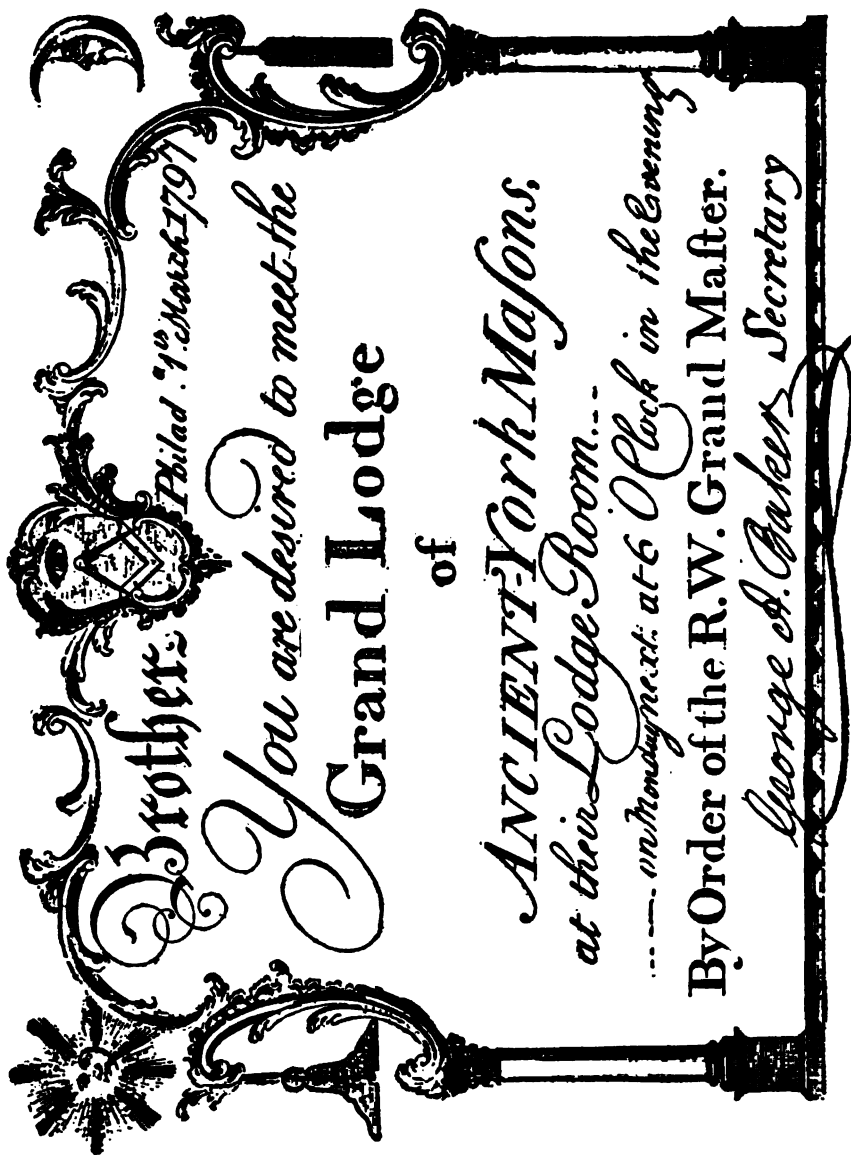 Philad. 1st March 1797
Brother
You are desired to meet the
Grand Lodge
of
ANCIENT-York Maſons,
at their Lodge Room....
on Monday next at 6 O Clock in the Evening
By Order of the R.W. Grand Maſter.
George A. Baker Secretary